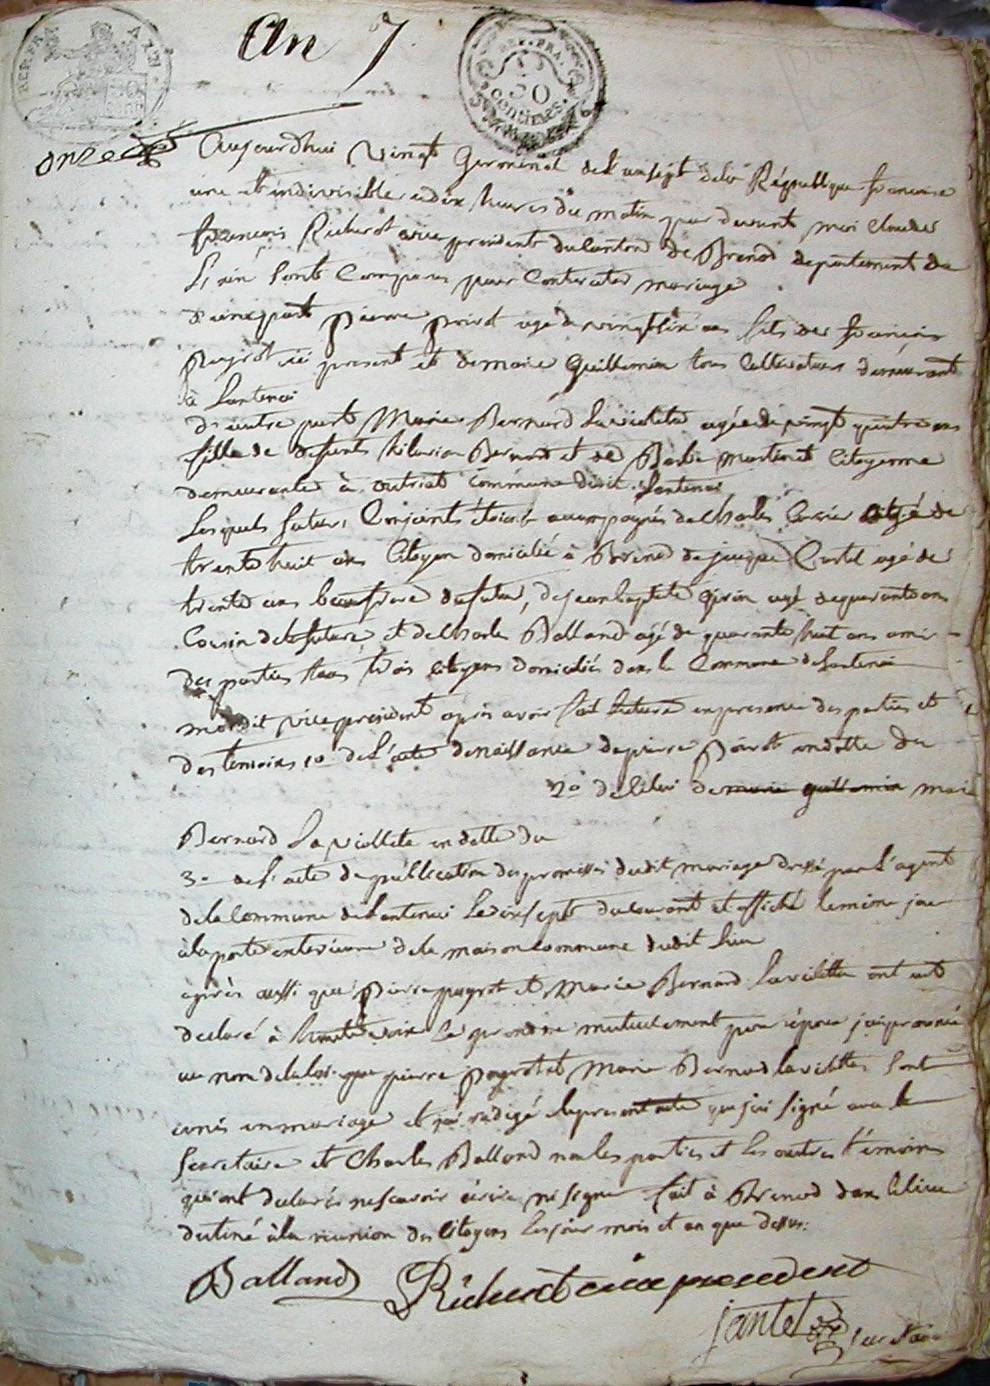 An 7
REP. FRA.
50
centimes.
onze
Aujourdhui vingt Germinal de l'an sept dela République francaise
une et indivisible a dix heures du matin par devant moi Claude
francois Richerot vice president du Canton de Brenod departement de
L'ain sont Comparus pour Contracter mariage
d'une part pierre poirot agé de vingt six ans fils de francois
ici present et de marie Guillemin tous Cultivateurs demeurant
à Lantenai
d'autre part Marie Bernard Laviolette agée de vingt quatre ans
fille de deffunts hilarion Bernard et de Martinet Citoyenne
demeurante à outriat Commune dudit Lantenai
Lesquels futurs Conjoints étoient accompagnés de Charles agé de
trente huit ans Citoyen domicilié à Brenod de jacques agé de
trente ans beaufrere du futur, de jean baptiste agé de quarante ans
Cousin de la future et de Charles Balland agé de quarante huit ans ami
des parties tous trois Citoyens domiciliés dans la Commune de Lantenai
moidit vice president après avoir fait lecture en presence des parties et
des temoins 1o de L'acte de naissance de pierre en datte du
2o de celui de marie guillemin marie
Bernard Laviollette en datte du
3o de l'acte de publication des promesses dudit mariage dressé par L'agent
de la Commune de Lantenai Le du Courant et affiché le meme jour
à la porte exterieure de la maison Commune dudit lieu
après aussi que Pierre et Marie Bernard Laviolette ont eut
declaré à haute voix Se prendre mutuellement pour époux j'ai prononcé
au nom de la loi que pierre et Marie Bernard laviolette Sont
unis en mariage et j'ai redigé le present acte que j'ai signé avec le
Secretaire et Charles Balland non les parties et les autres témoins
qui ont declaré ne scavoir écrire ni signer fait à Brenod dans le lieu
destiné à la reunion des Citoyens les jour mois et an que dessus:
Balland Richerot vice president
jantet secretaire